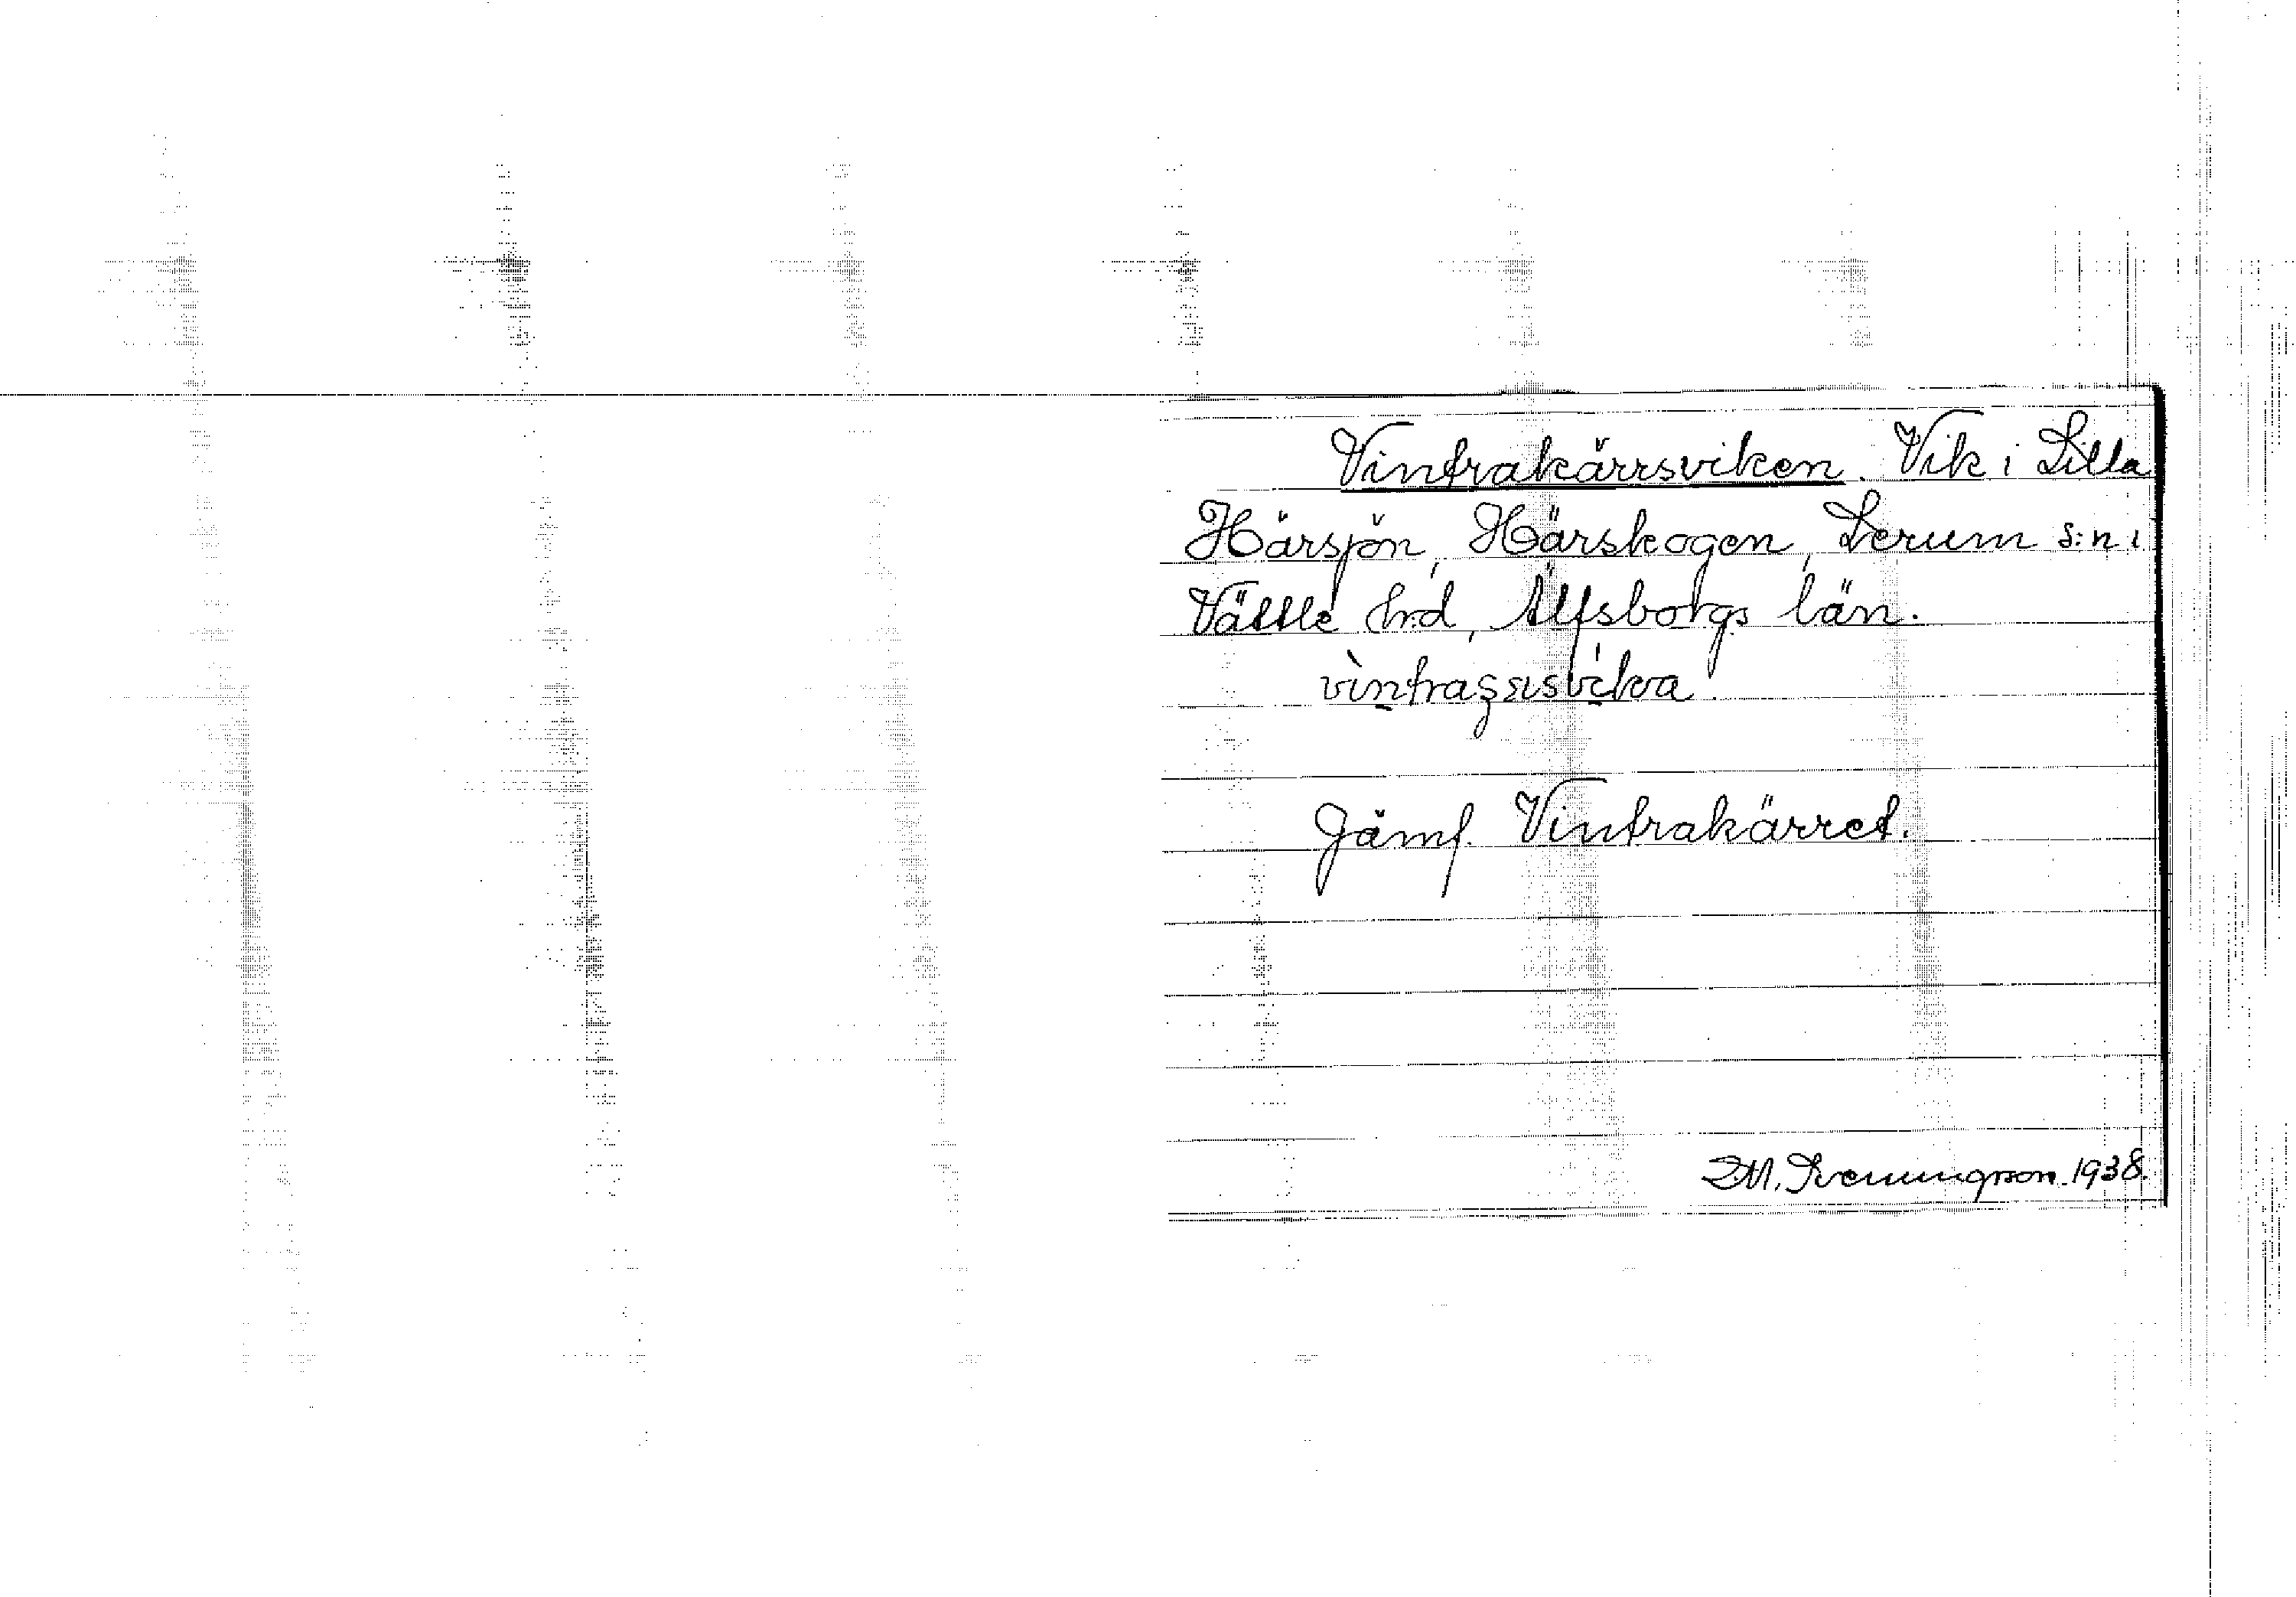 Vintrakärrsviken. Vik i Lilla
Härsjön, Härskogen, Lerum s:n i
Vättle hrd, Älfsborgs län.
Jämf. Vintrakärret.
1938.